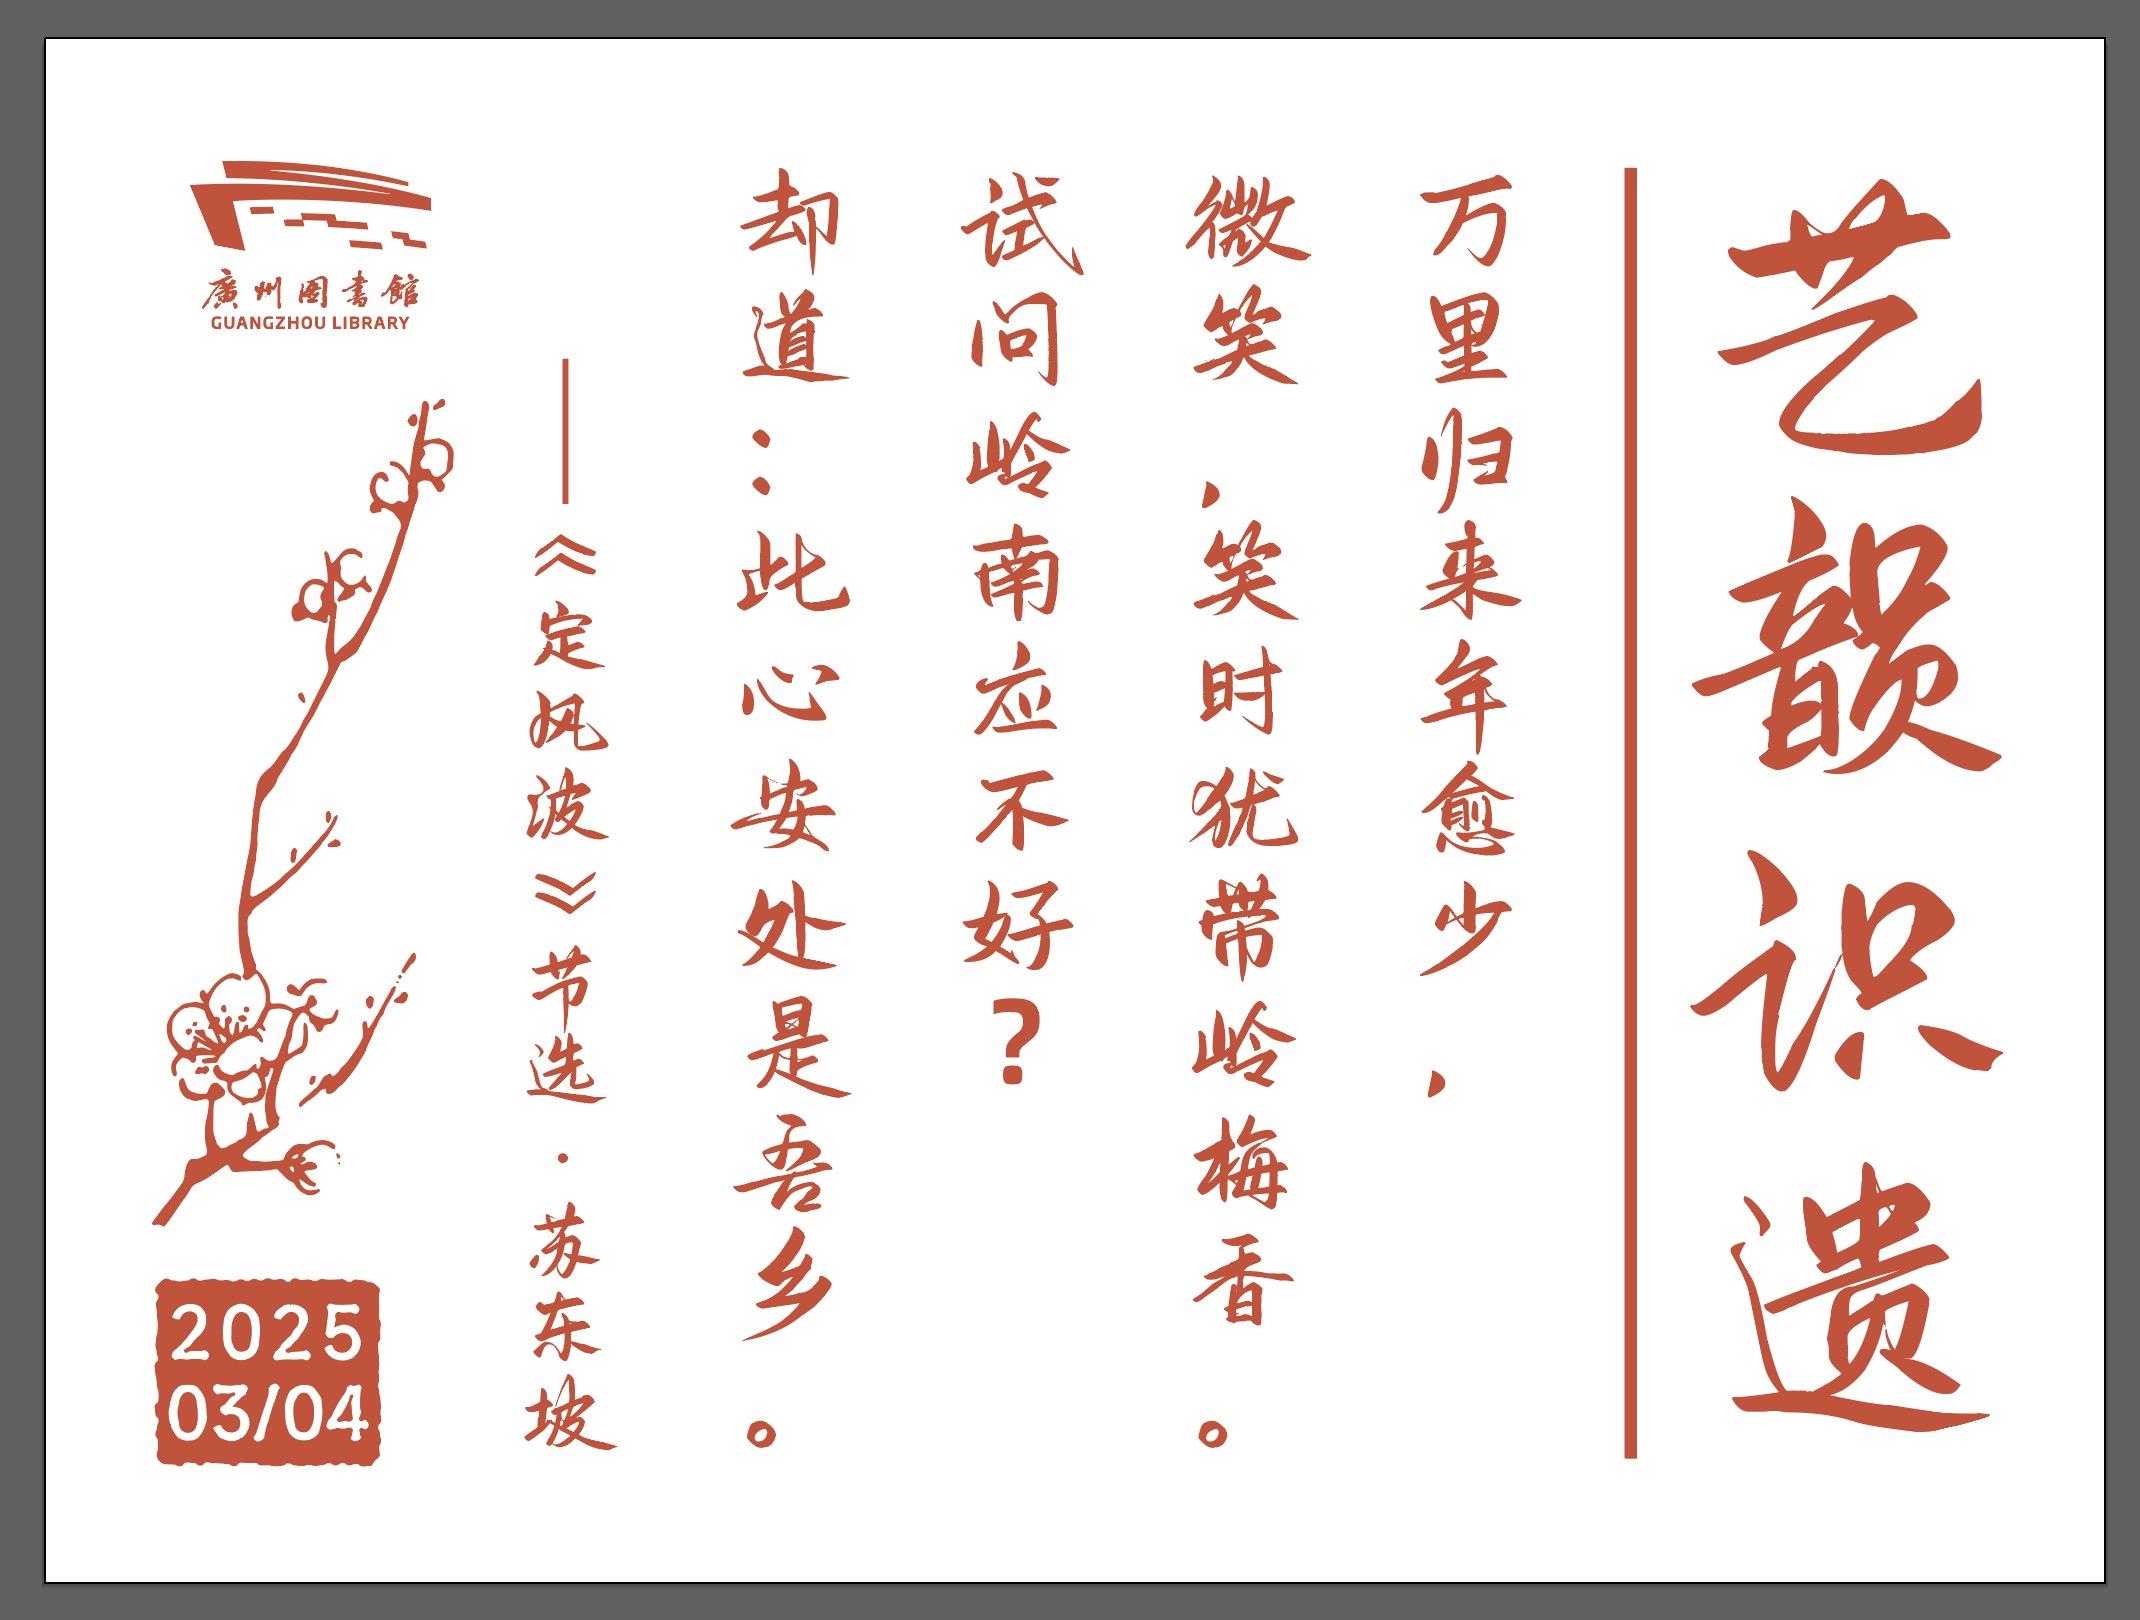 艺韻识遗
万里归来年愈少，
微笑，笑时犹带岭梅香。
试问岭南应不好？
却道：此心安处是吾乡。
——《定风波》节选·苏东坡
廣州图書館
GUANGZHOU LIBRARY
2025
03/04